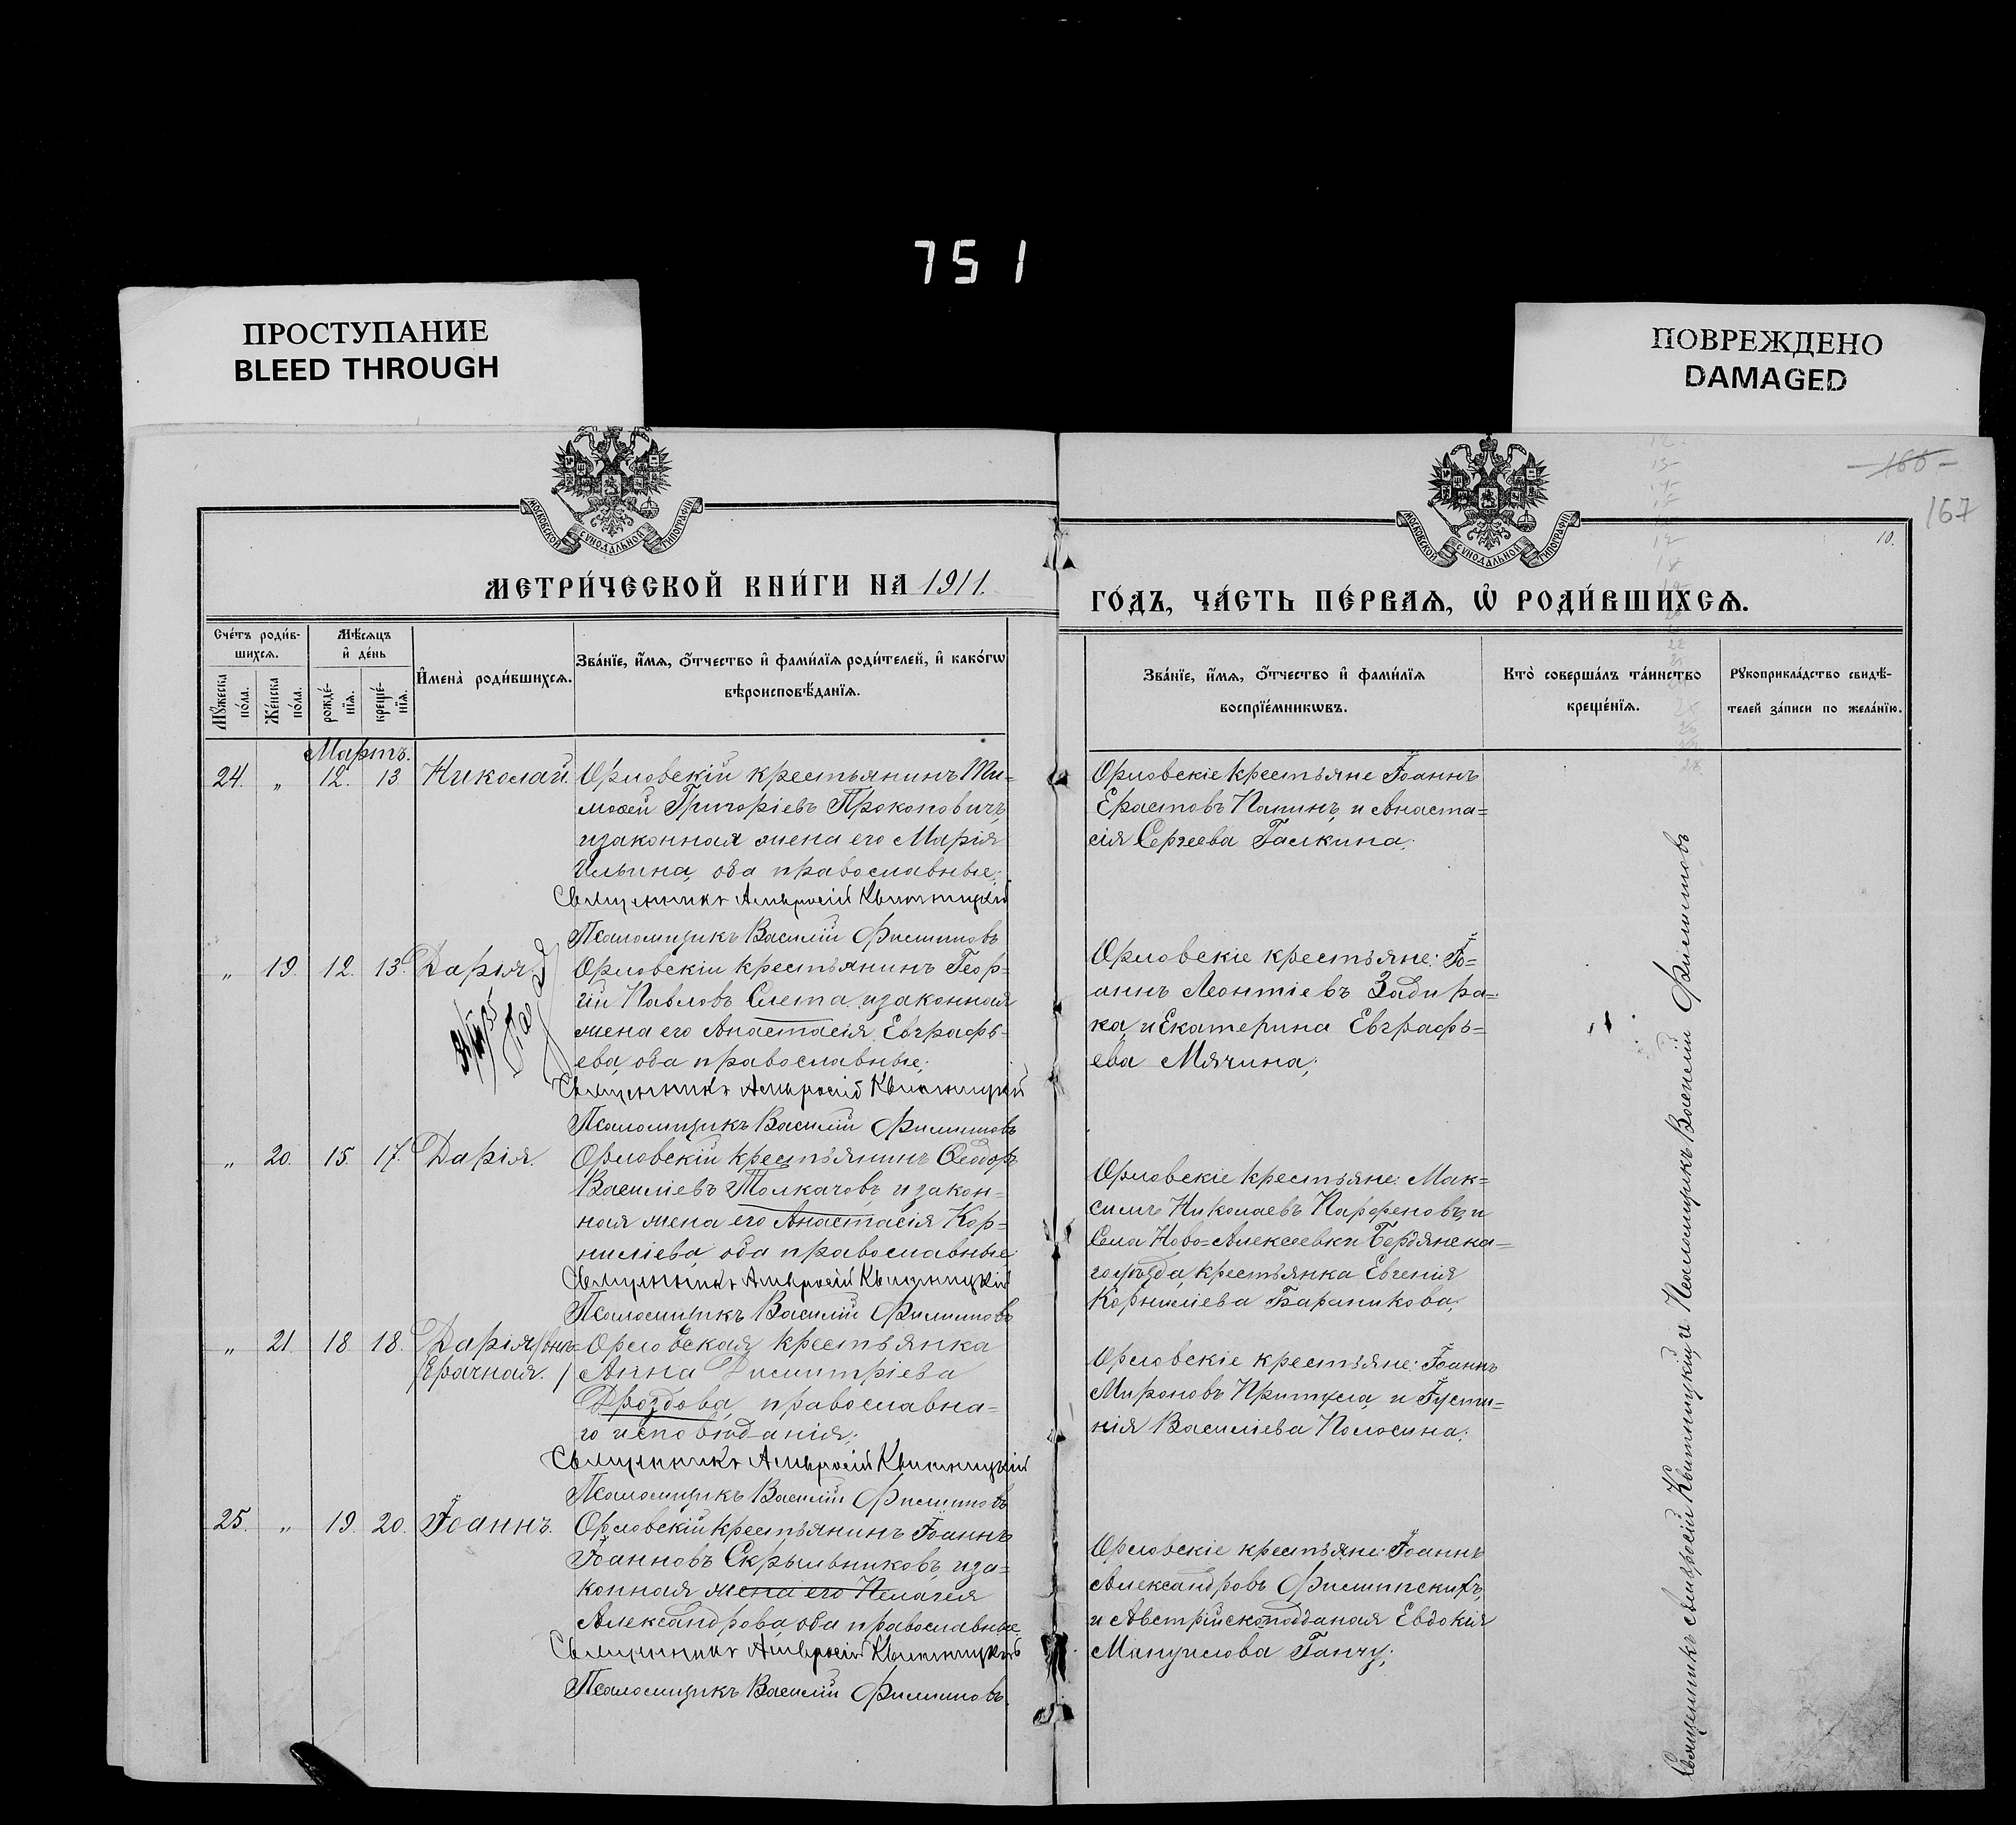 751
ПРОСТУПАНИЕ
BLEED THROUGH
ПОВРЕЖДЕНО
DAMAGED
166
167
10.
МОСКОВСКОЙ СѴНОДАЛЬНОЙ ТИПОГРАФІИ
МОСКОВСКОЙ СѴНОДАЛЬНОЙ ТИПОГРАФІИ
МЕТРИ́ЧЕСКОЙ КНИ́ГИ НА 1911.
ГО́ДЪ, ЧА́СТЬ ПЕ́РВАѦ, Ѽ РОДИ́ВШИХСѦ.
Сче́тъ роди́в-
шихсѧ.
Мꙋ́жеска по́ла.
Же́нска по́ла.
Мѣ́сѧцъ
и҆ де́нь
рожде́-
нїѧ.
креще́-
нїѧ.
И҆мена̀ роди́вшихсѧ.
Зва́нїе, и҆́мѧ, ѻ҆́тчество и҆ фами́лїѧ роди́телей, и҆ како́гѡ
вѣроисповѣ́данїѧ.
Зва́нїе, и҆́мѧ, ѻ҆́тчество и҆ фами́лїѧ
воспрїе́мникѡвъ.
Кто̀ соверша́лъ та́инство
креще́нїѧ.
Рꙋкоприкла́дство свидѣ́-
телей за́писи по жела́нїю.
Мартъ.
24. „ 12. 13 Николай. Орловскій крестьянинъ Ти-
мофей Григоріевъ Прокоповичъ,
и законная жена его Марія
Ильина, оба православные;
Священникъ Амвросій Квитницкій
Псаломщикъ Василій Филиповъ
Орловскіе крестьяне Іоаннъ
Ерастовъ Папинъ, и Анаста=
сія Сергеева Галкина;
„ 19. 12. 13. Дарія. Орловскій крестьянинъ Геор-
гій Павловъ Слета, и законная
жена его Анастасія Евграфь-
ева, оба православные;
Священникъ Амвросій Квитницкій
Псаломщикъ Василій Филиповъ
Орловскіе крестьяне: Іо=
аннъ Леонтіевъ Задира=
ка, и Екатерина Евграфь=
ева Мячина;
„ 20. 15. 17. Дарія. Орловскій крестьянинъ Ѳеодоръ
Василіевъ Толкачовъ, и закон=
ная жена его Анастасія Кор=
ниліева, оба православные;
Священникъ Амвросій Квитницкій
Псаломщикъ Василій Филиповъ
Орловскіе крестьяне: Мак=
симъ Николаевъ Парфеновъ, и
Села Ново=Алексеевки Бердянска=
го уѣзда, крестьянка Евгенія
Корниліева Бараникова;
„ 21. 18 18. Дарія /внѣ= Орловская крестьянка
брачная. / Анна Димитріева
Дроздова, православна=
го исповѣданія;
Священникъ Амвросій Квитницкій
Псаломщикъ Василій Филиповъ
Орловскіе крестьяне: Іоаннъ
Мироновъ Притула, и Іусти=
нія Василіева Полосина;
25. „ 19. 20. Іоаннъ. Орловскій крестьянинъ Іоаннъ
Іоанновъ Скрыльниковъ, и за=
конная жена его Пелагея
Александрова, оба православные.
Священникъ Амвросій Квитницкій
Псаломщикъ Василій Филиповъ.
Орловскіе крестьяне: Іоаннъ
Александровъ Филипскихъ,
и Австрійскоподданая Евдокія
Мануилова Ганчу;
Священникъ Амвросій Квитницкій и Псаломщикъ Василій Филиповъ